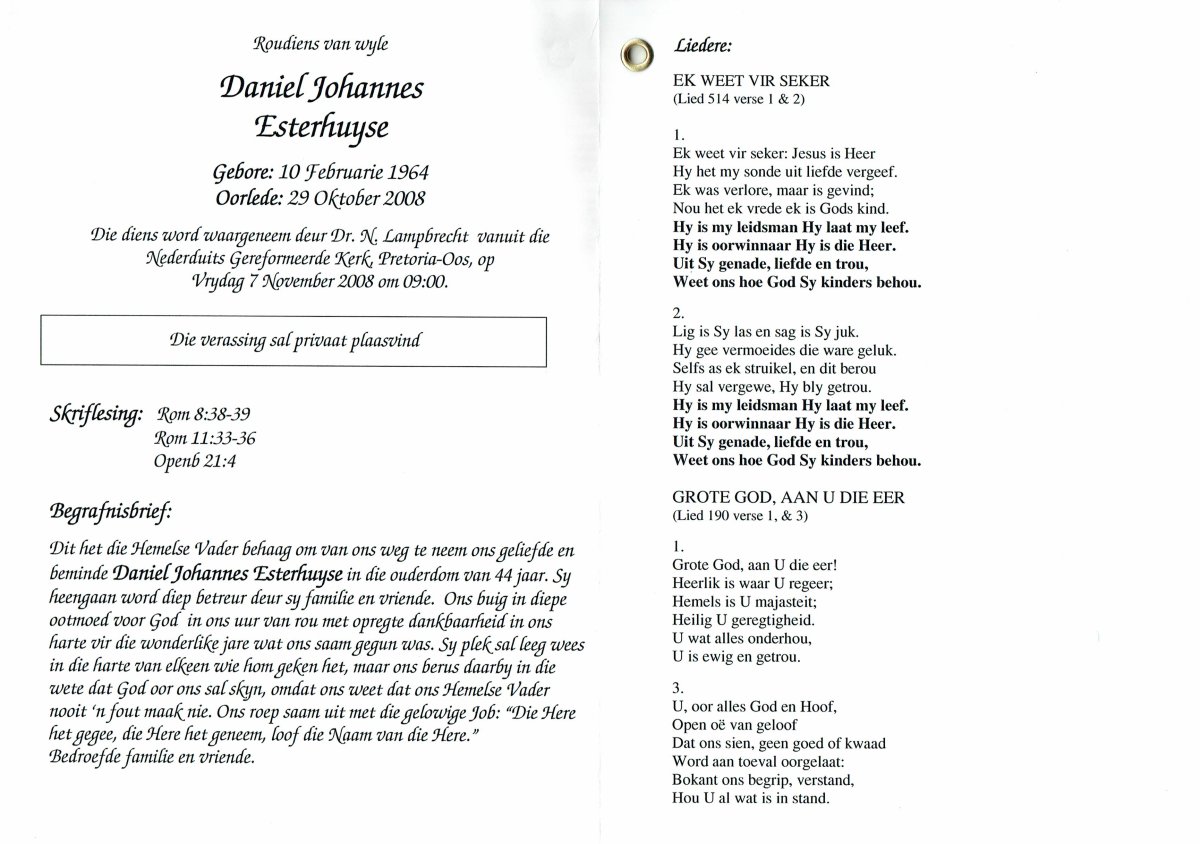 Roudiens van wyle
Daniel Johannes
Esterhuyse
Gebore: 10 Februarie 1964
Oorlede: 29 Oktober 2008
Die diens word waargeneem deur Dr. N. Lampbrecht vanuit die
Nederduits Gereformeerde Kerk, Pretoria-Oos, op
Vrydag 7 November 2008 om 09:00.
Die verassing sal privaat plaasvind
Skriflesing: Rom 8:38-39
Rom 11:33-36
Openb 21:4
Begrafnisbrief:
Dit het die Hemelse Vader behaag om van ons weg te neem ons geliefde en
beminde Daniel Johannes Esterhuyse in die ouderdom van 44 jaar. Sy
heengaan word diep betreur deur sy familie en vriende. Ons buig in diepe
ootmoed voor God in ons uur van rou met opregte dankbaarheid in ons
harte vir die wonderlike jare wat ons saam gegun was. Sy plek sal leeg wees
in die harte van elkeen wie hom geken het, maar ons berus daarby in die
wete dat God oor ons sal skyn, omdat ons weet dat ons Hemelse Vader
nooit ‘n fout maak nie. Ons roep saam uit met die gelowige Job: “Die Here
het gegee, die Here het geneem, loof die Naam van die Here.”
Bedroefde familie en vriende.
Liedere:
EK WEET VIR SEKER
(Lied 514 verse 1 & 2)
1.
Ek weet vir seker: Jesus is Heer
Hy het my sonde uit liefde vergeef.
Ek was verlore, maar is gevind;
Nou het ek vrede ek is Gods kind.
Hy is my leidsman Hy laat my leef.
Hy is oorwinnaar Hy is die Heer.
Uit Sy genade, liefde en trou,
Weet ons hoe God Sy kinders behou.
2.
Lig is Sy las en sag is Sy juk.
Hy gee vermoeides die ware geluk.
Selfs as ek struikel, en dit berou
Hy sal vergewe, Hy bly getrou.
Hy is my leidsman Hy laat my leef.
Hy is oorwinnaar Hy is die Heer.
Uit Sy genade, liefde en trou,
Weet ons hoe God Sy kinders behou.
GROTE GOD, AAN U DIE EER
(Lied 190 verse 1, & 3)
1.
Grote God, aan U die eer!
Heerlik is waar U regeer;
Hemels is U majasteit;
Heilig U geregtigheid.
U wat alles onderhou,
U is ewig en getrou.
3.
U, oor alles God en Hoof,
Open oë van geloof
Dat ons sien, geen goed of kwaad
Word aan toeval oorgelaat:
Bokant ons begrip, verstand,
Hou U al wat is in stand.